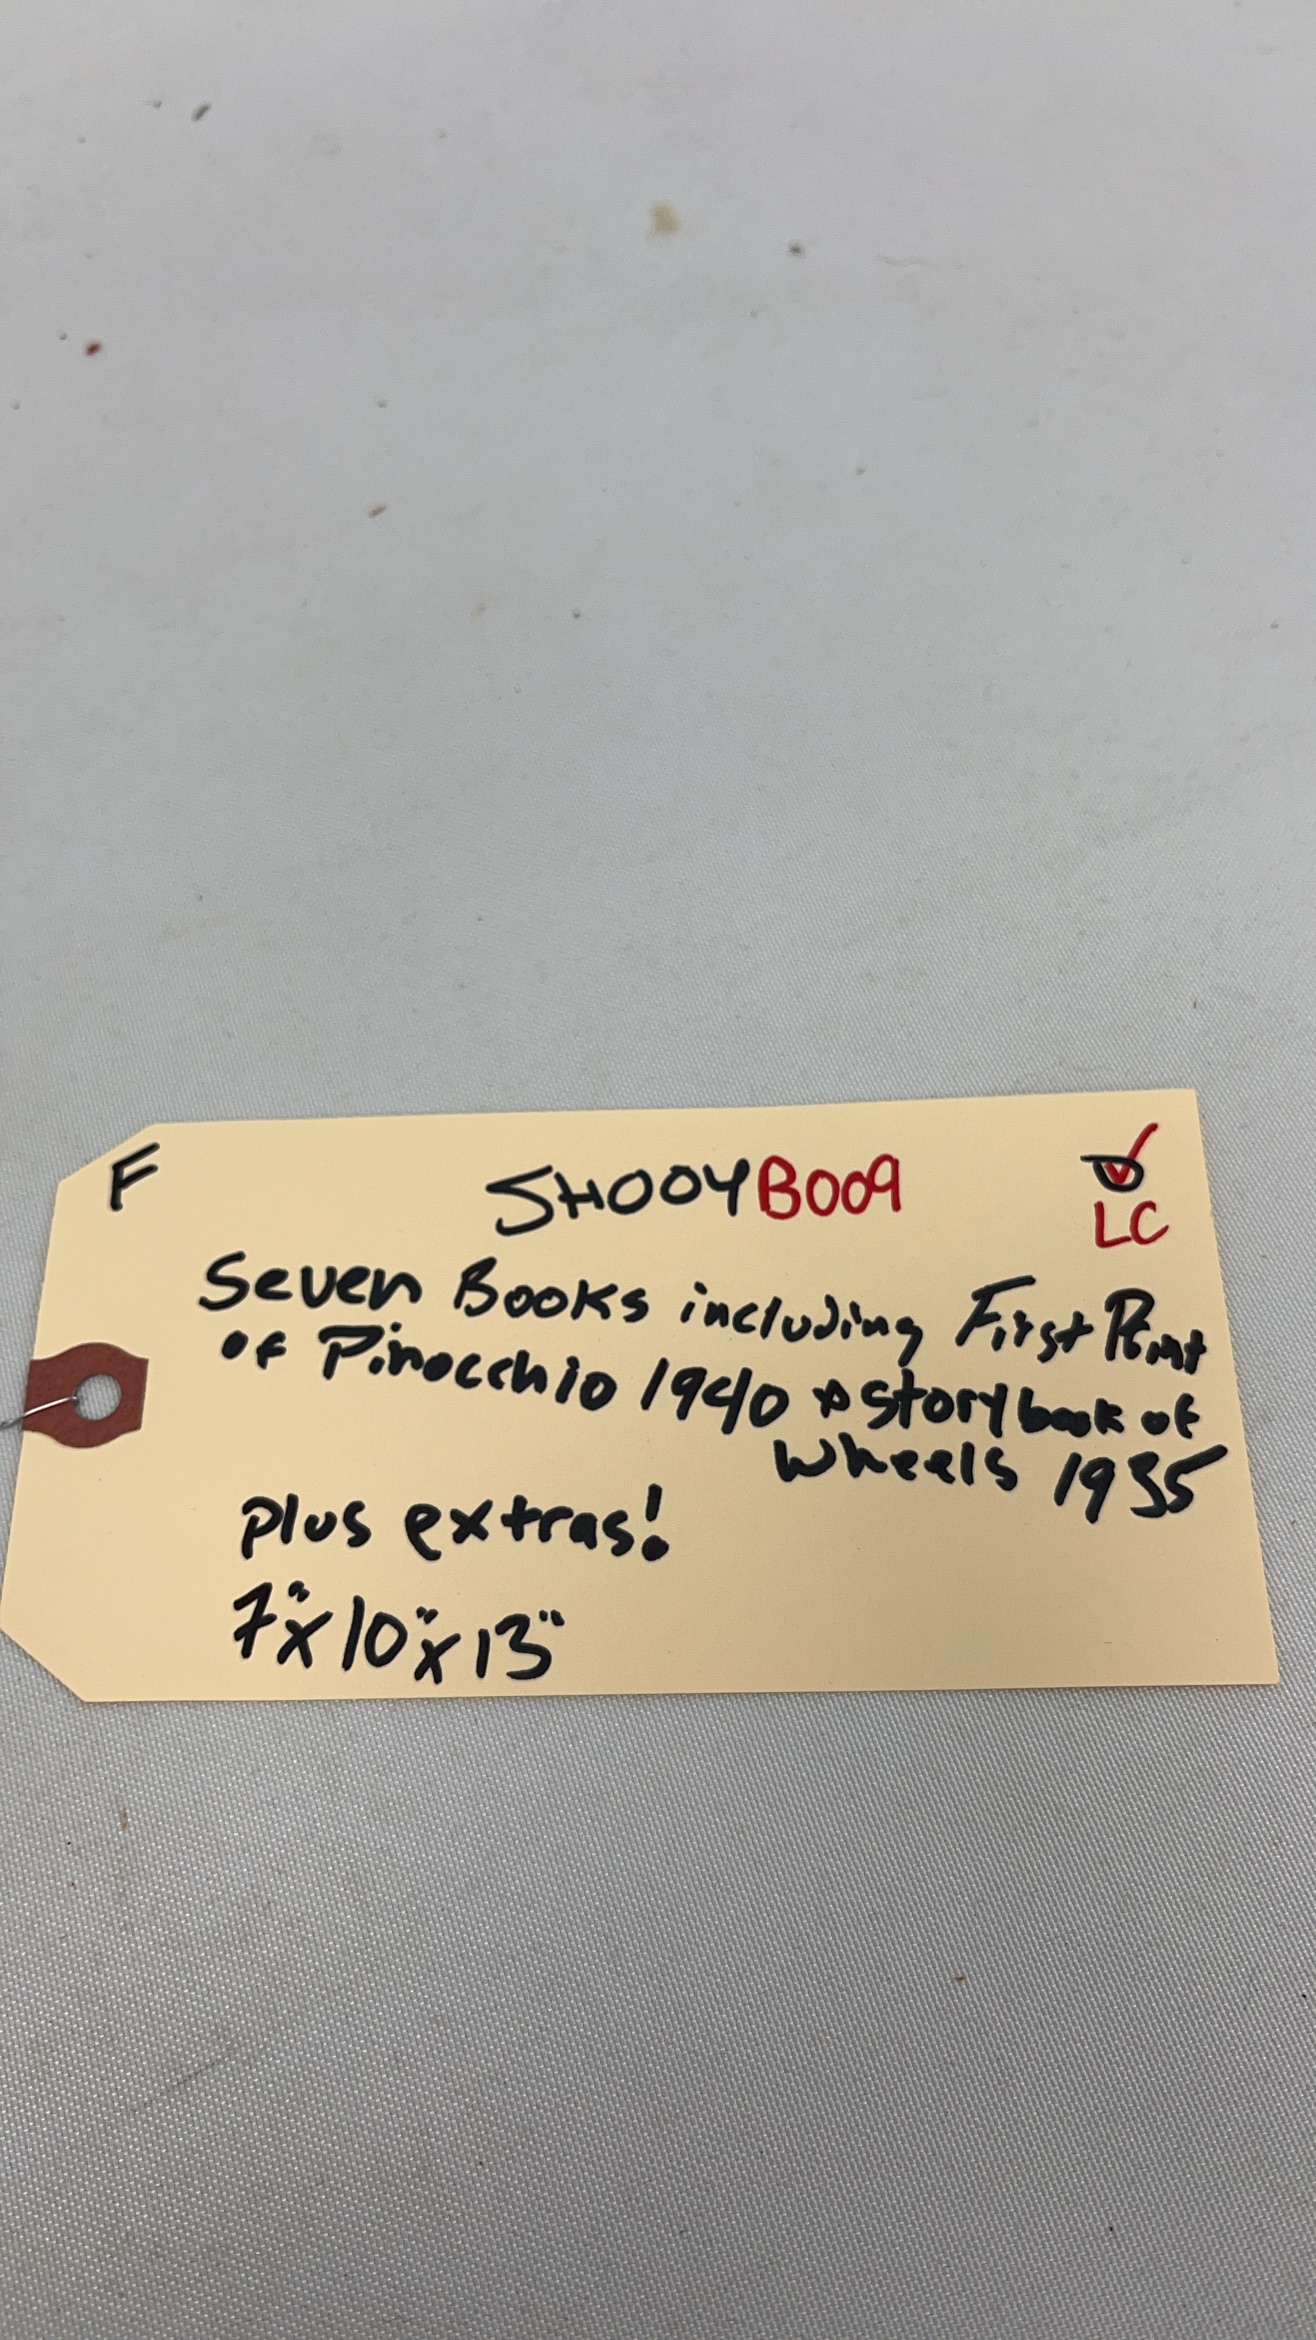 F
SH004B009
LC
Seven Books including First Print
of Pinocchio 1940 & Storybook of
Wheels 1935
plus extras!
7"x10"x13"